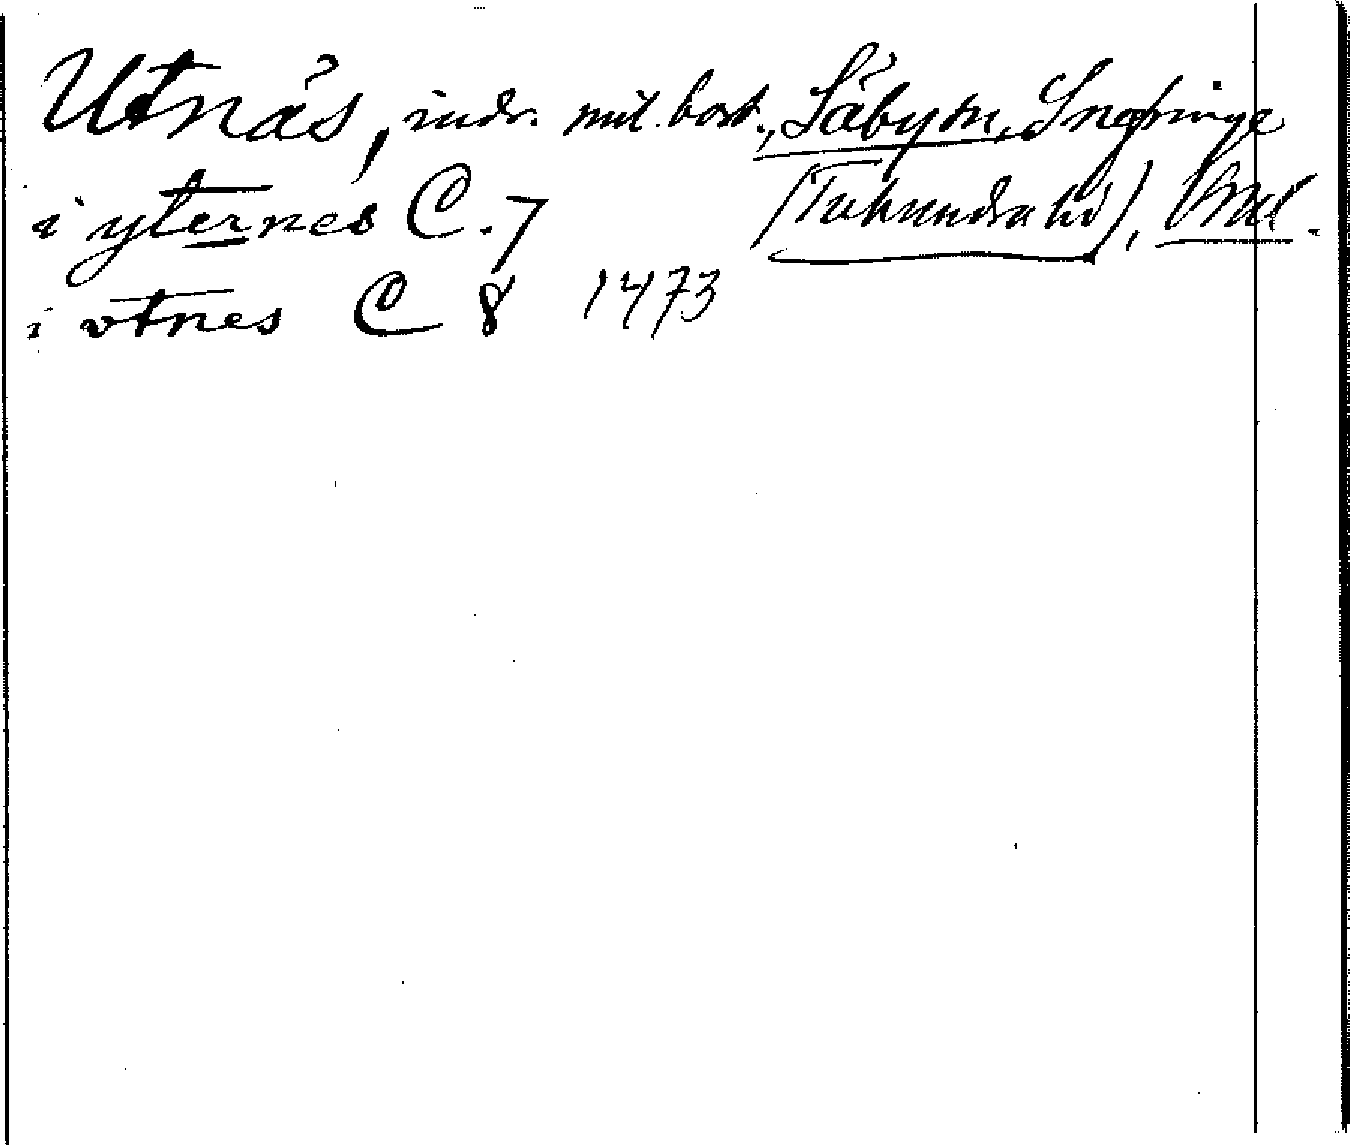 Utnäs, indr. mil. bost., Säbyön, Snöpinge
i yternes C. 7 (Tuhundra hd), Vml.
i vtnes C 8 1473